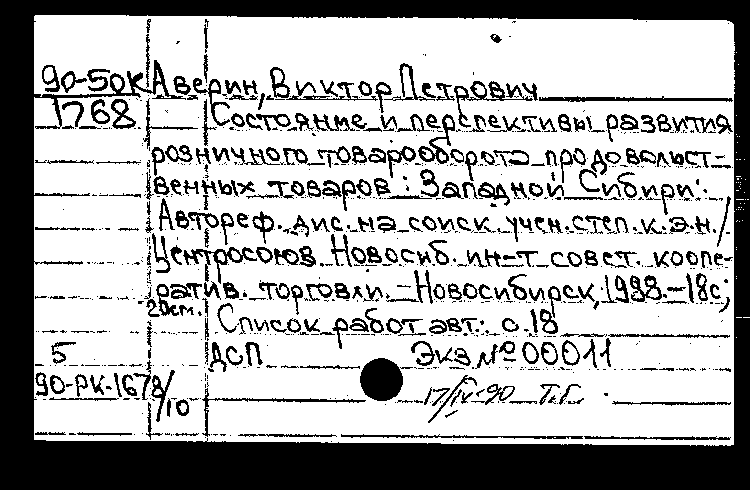 90-50к Аверин, Виктор Петрович
1768 Состояние и перспективы развития
розничного товарооборота продовольст-
венных товаров : Западной Сибири :
Автореф. дис. на соиск учен. степ. к.э.н. /
Центросоюз Новосиб. ин-т совет. коопе-
ратив. торговли. - Новосибирск, 1988. - 18с;
20см. Список работ авт.: с. 18
5 ДСП Экз № 00011
90-РК-1678/10 17/IV-90 Т.Г.